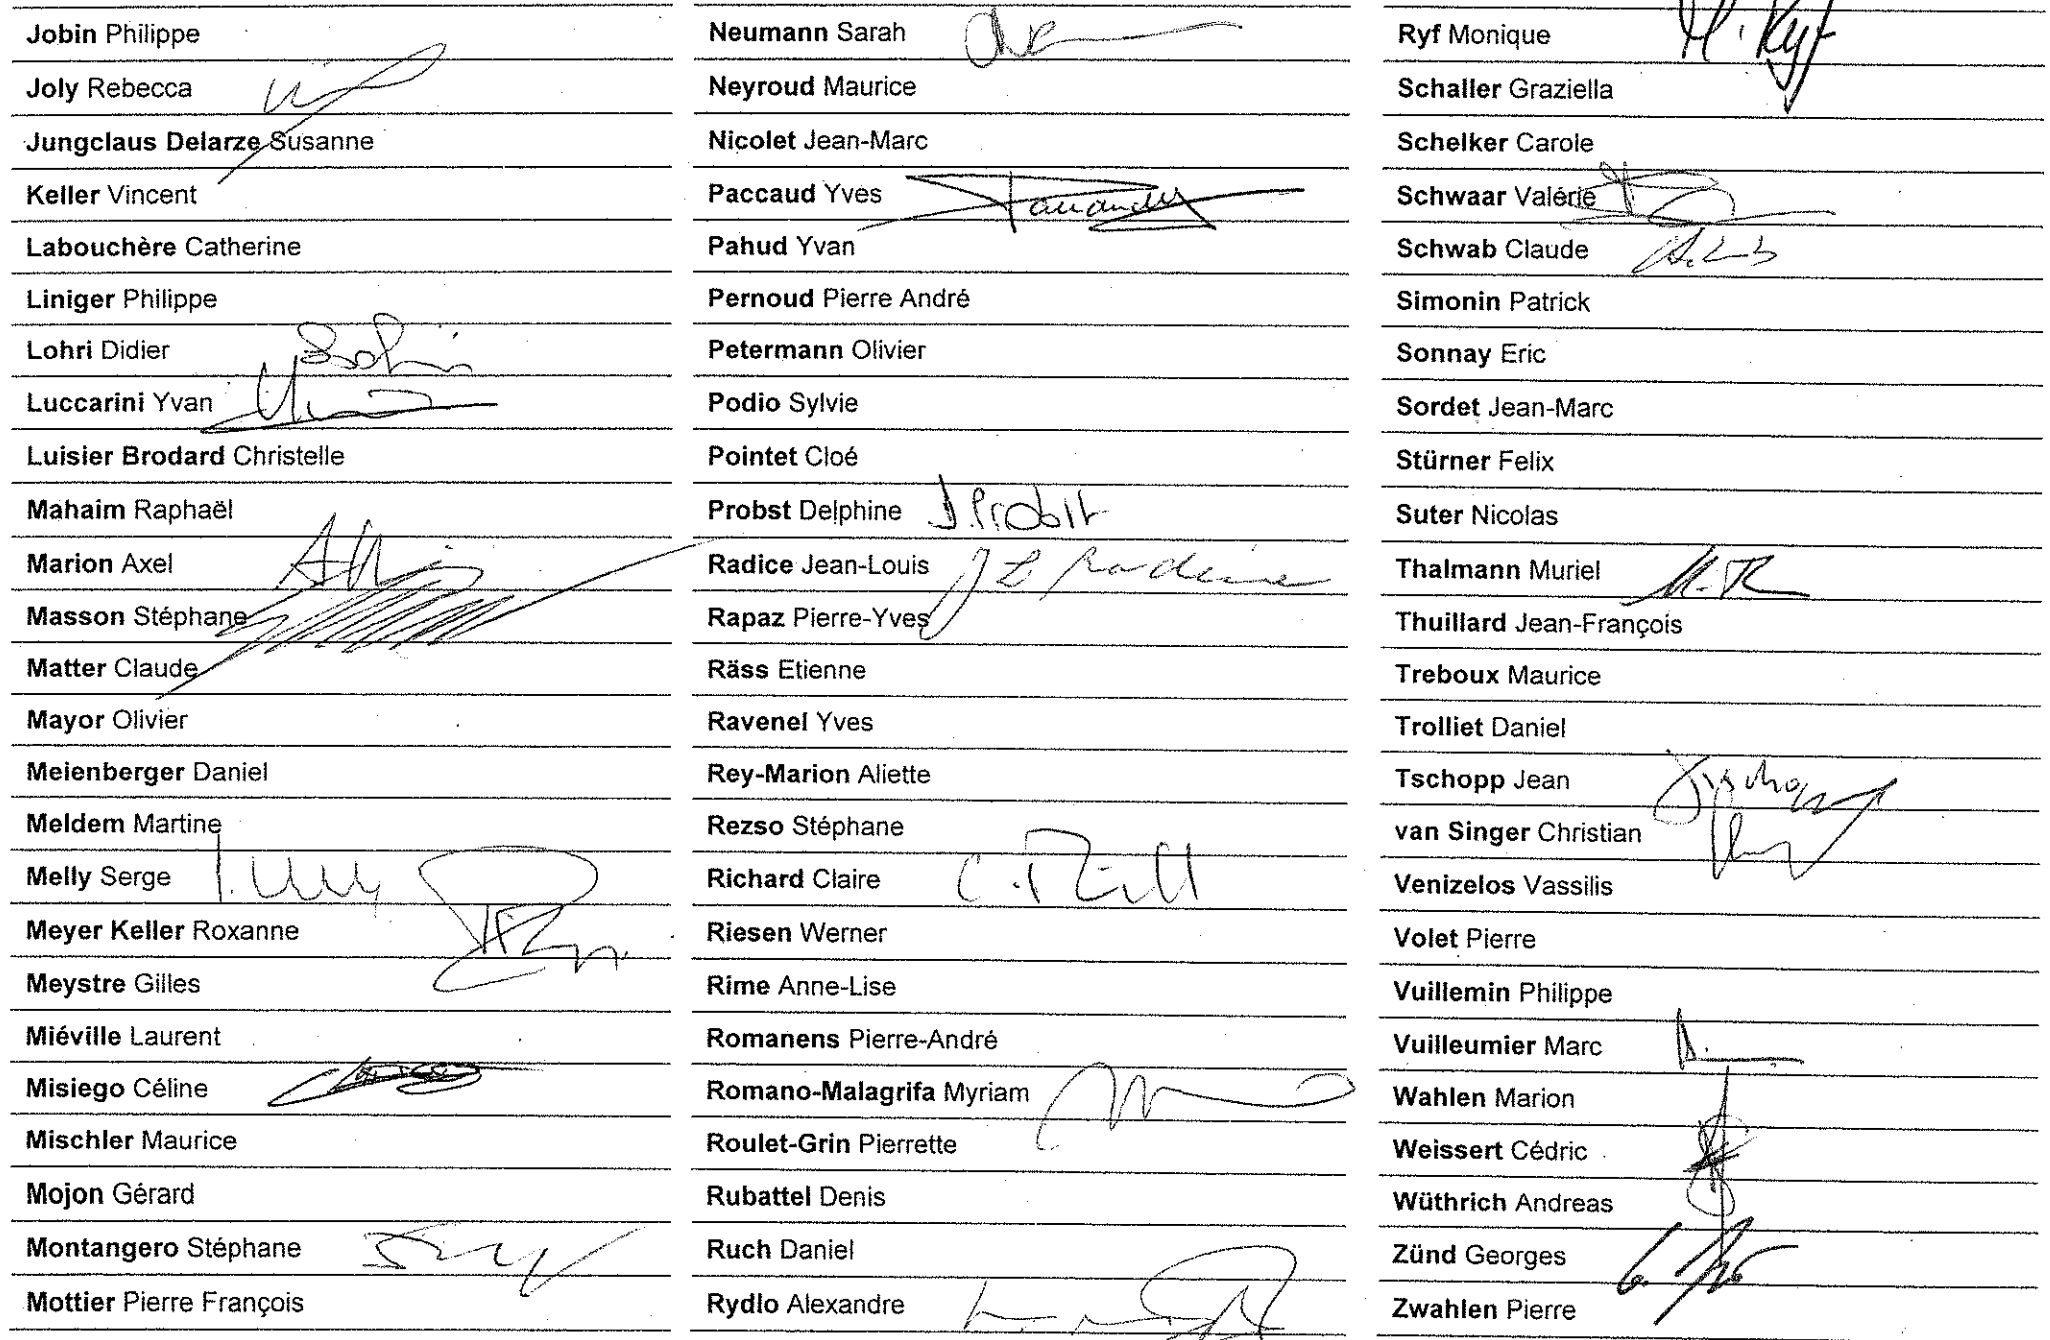 Jobin Philippe
Joly Rebecca
Jungclaus Delarze Susanne
Keller Vincent
Labouchère Catherine
Liniger Philippe
Lohri Didier
Luccarini Yvan
Luisier Brodard Christelle
Mahaim Raphaël
Marion Axel
Masson Stéphane
Matter Claude
Mayor Olivier
Meienberger Daniel
Meldem Martine
Melly Serge
Meyer Keller Roxanne
Meystre Gilles
Miéville Laurent
Misiego Céline
Mischler Maurice
Mojon Gérard
Montangero Stéphane
Mottier Pierre François
Neumann Sarah
Neyroud Maurice
Nicolet Jean-Marc
Paccaud Yves
Pahud Yvan
Pernoud Pierre André
Petermann Olivier
Podio Sylvie
Pointet Cloé
Probst Delphine D. Probst
Radice Jean-Louis J L Radice
Rapaz Pierre-Yves
Räss Etienne
Ravenel Yves
Rey-Marion Aliette
Rezso Stéphane
Richard Claire
Riesen Werner
Rime Anne-Lise
Romanens Pierre-André
Romano-Malagrifa Myriam
Roulet-Grin Pierrette
Rubattel Denis
Ruch Daniel
Rydlo Alexandre
Ryf Monique M. Ryf
Schaller Graziella
Schelker Carole
Schwaar Valérie
Schwab Claude
Simonin Patrick
Sonnay Eric
Sordet Jean-Marc
Stürner Felix
Suter Nicolas
Thalmann Muriel
Thuillard Jean-François
Treboux Maurice
Trolliet Daniel
Tschopp Jean
van Singer Christian
Venizelos Vassilis
Volet Pierre
Vuillemin Philippe
Vuilleumier Marc
Wahlen Marion
Weissert Cédric
Wüthrich Andreas
Zünd Georges
Zwahlen Pierre